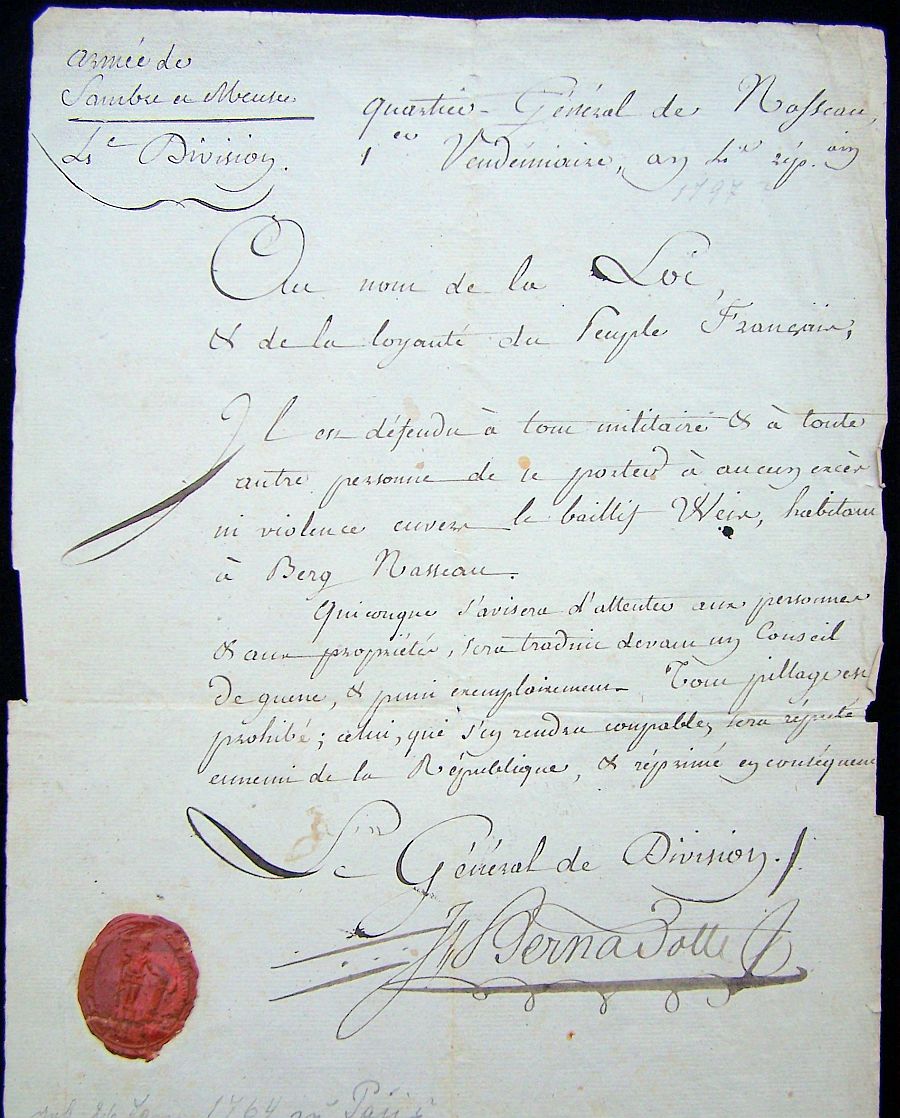 Armée de
Sambre et Meuse
4e Division.
Quartier-Général de Nasseau,
1er Vendémiaire, an 4e rép.ain
1797
Au nom de la Loi,
& de la loyauté du Peuple Français,
Il est défendu à tout militaire & à toute
autre personne de se porter à aucun excès
ni violence envers le baillif Weis, habitant
à Berg Nasseau.
Quiconque s'avisera d'attenter aux personnes
& aux propriétés, sera traduit devant un Conseil
de guerre, & puni exemplairement. Tout pillage est
prohibé; celui, qui s'en rendra coupable, sera réputé
ennemi de la République, & réprimé en conséquence
Le Général de Division.
JBernadotte
1764 zu Paris